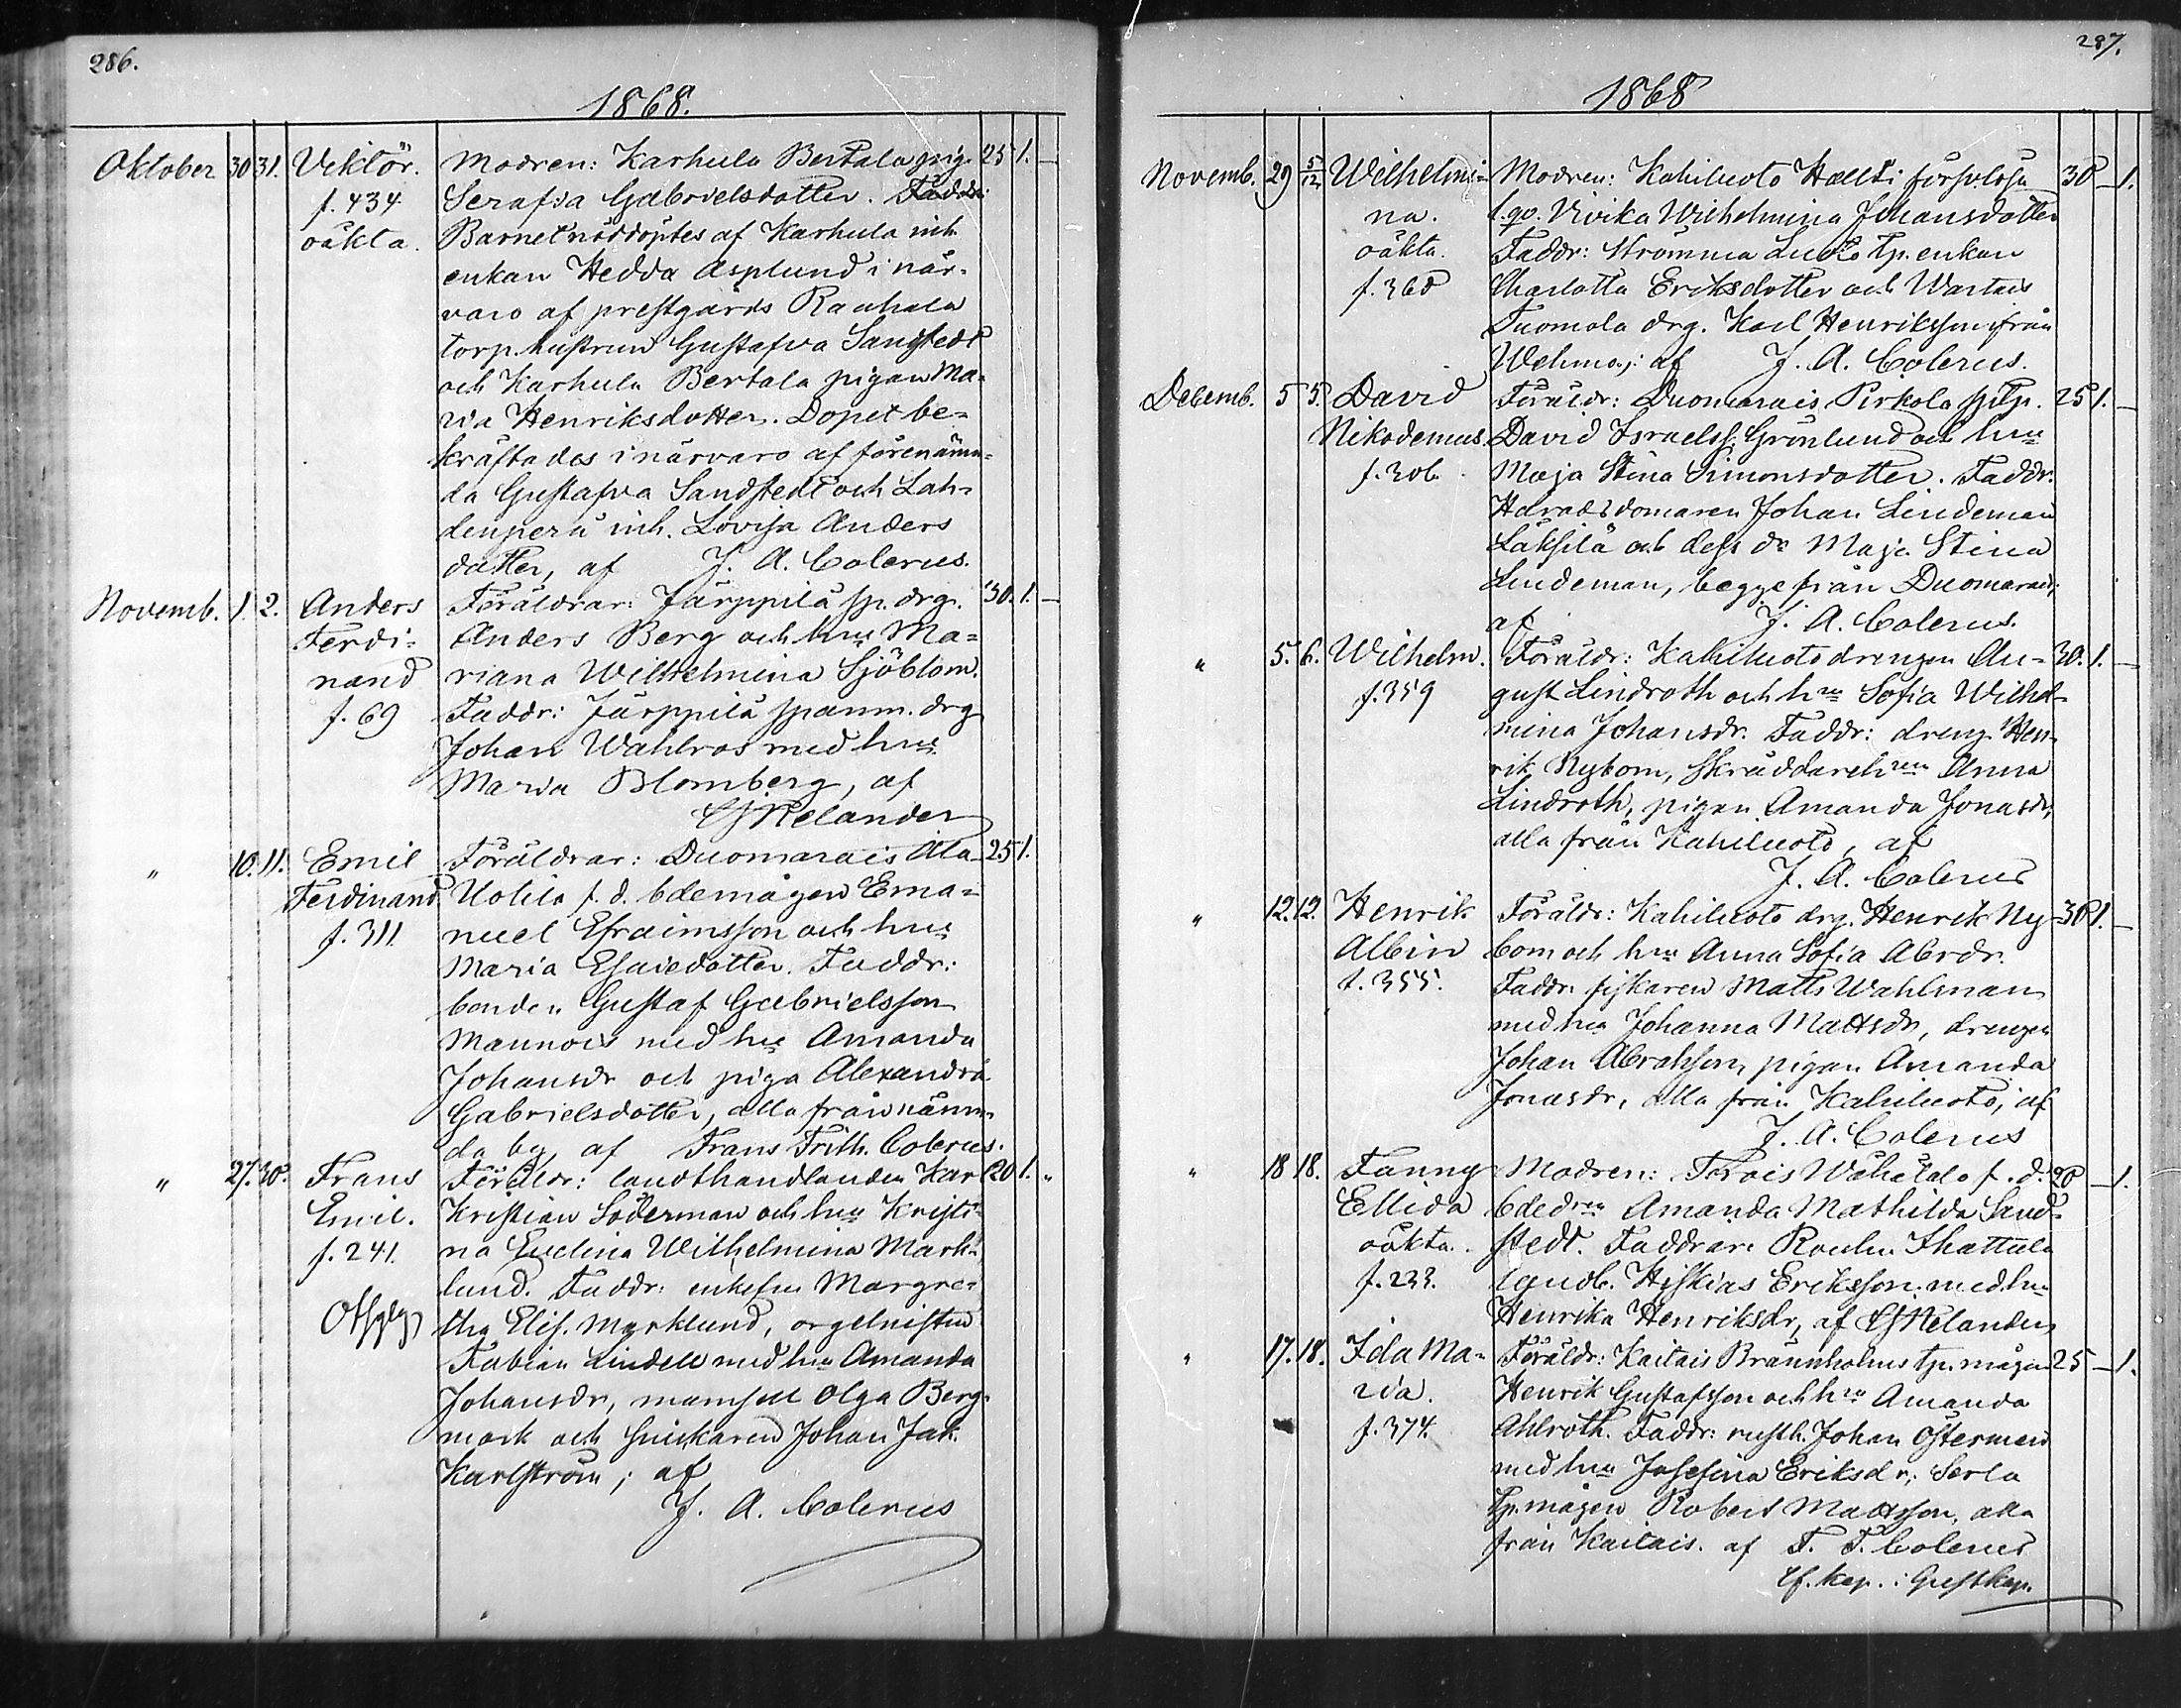 286.
1868.
Oktober 30 31. Viktor. Modren: Karhula Bertala pig. 25 1. –
f. 434 Serafia Gabrielsdotter.
oäkta. Barnet nöddöptes af Karhula inh.
enkan Hedda Asplund i när-
varo af prestgårds Rauhala
torp. hustrun Gustafva Sandstedt
och Karhula Bertala pigan Ma-
ria Henriksdotter. Dopet be-
kräftades i närvaro af förenämn-
da Gustafva Sandstedt och Lah-
denperä inh. Lovisa Anders
dotter, af J. A. Colerus.
Novemb. 1. 2. Anders Föräldrar: Järppilä sp. drg. 30. 1. –
Ferdi- Anders Berg och hu Ma-
nand riana Wilhelmina Sjöblom.
f. 69 Faddr: Järppilä spanm. drg
Johan Wahlros med hu
Maria Blomberg, af
Helander
" 10. 11. Emil Föräldrar: Duomarais Ala- 25 1.
Ferdinand Uotila f. d. bdemågen Ema-
f. 311 nuel Efraimsson och hu
Maria Esaiedotter. Faddr:
bonden Gustaf Gabrielsson
Mannois med hu Amanda
Johansdr och piga Alexandra
Gabrielsdotter, alla från nämn-
da by, af Frans Frith. Colerus.
" 27. 30. Frans Föräldr: landthandlanden Karl 20 1. "
Emil. Kristian Söderman och hu Kristi-
f. 241. na Evelina Wilhelmina Mark-
lund. Faddr: enkefru Margre-
tha Elis. Marklund, orgelnisten
Fabian Lindell med hu Amanda
Johansdr, mamsell Olga Berg-
mark och snickaren Johan Jak.
Karlström; af
J. A. Colerus
287.
1868
Novemb. 29 5/12 Wilhelmi- Modren: Kahiluoto Hallti försvlösa 30 – 1.
na. Vivika Wilhelmina Johansdotter
oäkta. Faddr: Strömma Luoto tp. enkan
f. 360 Charlotta Eriksdotter och Wartais
Tuomola drg. Karl Henriksson från
Wehmo; af J. A. Colerus.
Decemb. 5 5. David Föräldr: Duomarais Pirkola 25 1. –
Nikodemus. David Israelss. Grönlund och hu
f. 306. Maja Stina Simonsdotter. Faddr.
Häradsdomaren Johan Lindeman
Läksilä och dess dr Maja Stina
Lindeman, begge från Duomarais;
af J. A. Colerus.
" 5. 6. Wilhelm. Föräldr: Kahiluoto drengen Au- 30. 1. –
f. 359 gust Lindroth och hu Sofia Wilhel-
mina Johansdr. Faddr: dreng. Hen-
rik Nybom, skräddareh Anna
Lindroth, pigan Amanda Jonasdr,
alla från Kahiluoto, af
J. A. Colerus
" 12. 12. Henrik Föräldr: Kahiluoto drg. Henrik Ny- 30 1. –
Albin bom och hu Anna Sofia Abrdr.
f. 355. Faddr: fiskaren Matts Wahlman
med hu Johanna Mattsdr, drengen
Johan Abrahsson, pigan Amanda
Jonasdr, alla från Kahiluoto, af
J. A. Colerus
" 18 18. Fanny Modren: Torais Wähätalo f. d. 20 – 1.
Ellida bdedrn Amanda Mathilda Sand-
oäkta. stedt. Faddrar: Rouhu Ihattula
f. 233. landb. Hiskias Eriksson med hu
Henrika Henriksdr, af Helander
" 17. 18. Ida Ma- Föräldr: Kaitais Brännholms tp. mågen 25 – 1.
ria. Henrik Gustafsson och hu Amanda
f. 374. Ahlroth. Faddr: rusth. Johan Österman
med hu Josefina Eriksdr, Serla
tp. mågen Robert Mattsson, alla
från Kaitais. af F. F. Colerus
kap. i Gustkap.